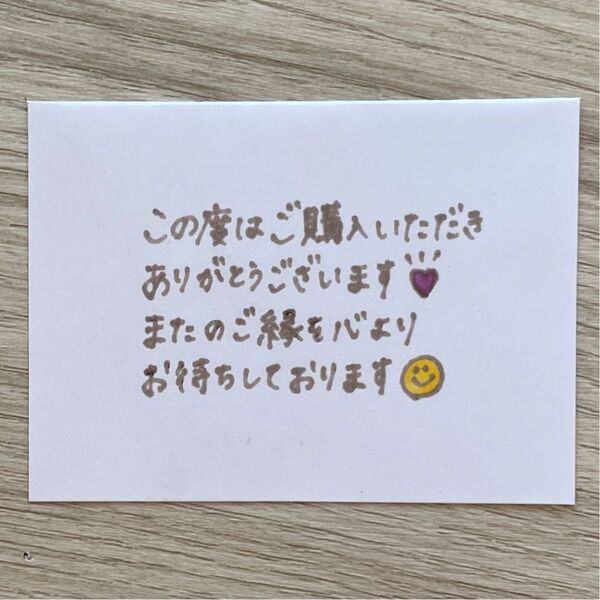 この度はご購入いただき
ありがとうございます
またのご縁を心より
お待ちしております